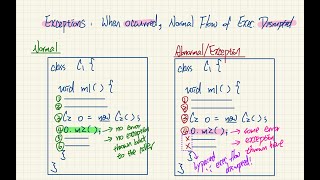 Exceptions. When occurred, Normal Flow of Exec. Disrupted
Normal
class C1 {
void m1() {
①
②
③ C2 O = new C2();
④ O.m2();
→ no error
→ no exception
thrown back
to the caller
⑤
⑥
}
}
Abnormal/Exception
class C1 {
void m1() {
①
②
③ C2 O = new C2();
④ O.m2();
→ some error
→ exception
thrown back
x
x
}
}
exec. flow
disrupted!